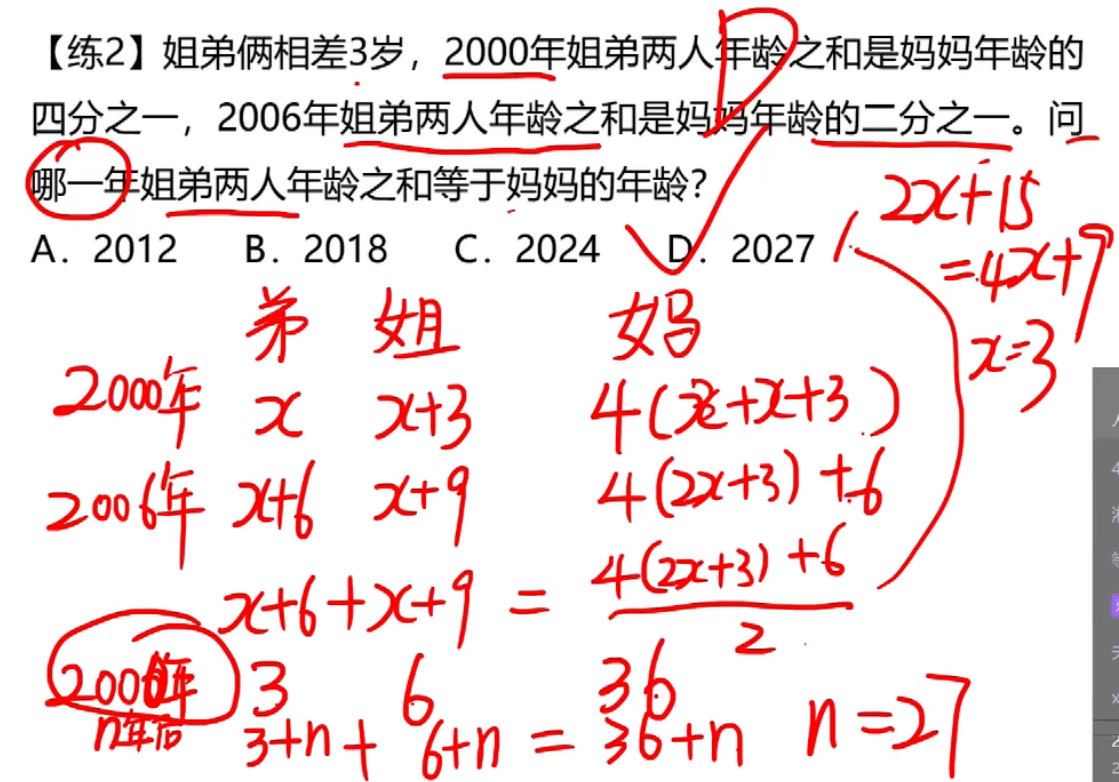 【练2】姐弟俩相差3岁，2000年姐弟两人年龄之和是妈妈年龄的
四分之一，2006年姐弟两人年龄之和是妈妈年龄的二分之一。问
哪一年姐弟两人年龄之和等于妈妈的年龄？
A. 2012 B. 2018 C. 2024 D. 2027
D
2x+15
=4x+9
x=3
弟 姐 妈
2000年 x x+3 4(x+x+3)
2006年 x+6 x+9 4(2x+3)+6
x+6+x+9 = 4(2x+3)+6
2
2000年 3 6 36
n年后 3+n+ 6+n = 36+n n=27